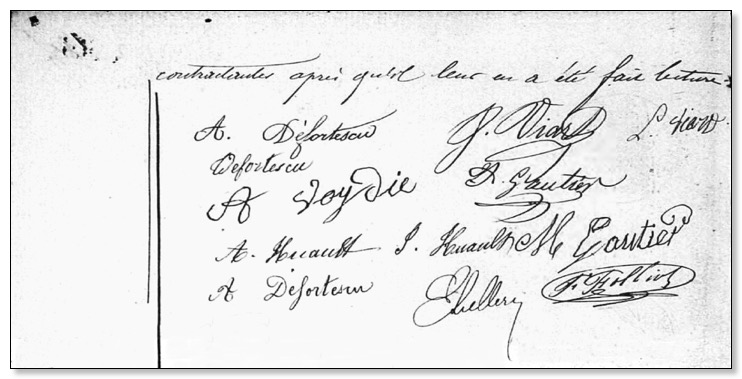 contractantes après qu'il leur en a été fait lecture
A. Défortescu P. Viard L. Viard
Defortescu
A Voydie A. Gautier
A. Huault J. Huault M Gautier
A Défortescu F. Folliot